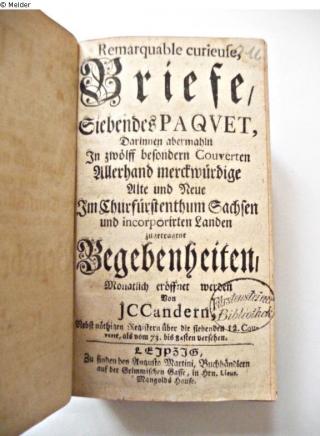 © Melder
Remarquable curieuse,
Briefe/
Siebendes PAQVET,
Darinnen abermahln
In zwölff besondern Couverten
Allerhand merckwürdige
Alte und Neue
Im Churfürstenthum Sachsen
und incorporirten Landen
zugetragene
Begebenheiten/
Monatlich eröffnet werden
Von
JCCandern,
Nebst nöthigen Registern über die siebenden 12. Cou-
verte, als vom 73. bis 84sten versehen.
LEIPZIG,
Zu finden bey Augusto Martini, Buchhändlern
auf der Grimmischen Gasse, in Hrn. Lieut.
Mangolds Hause.
Bibliothek